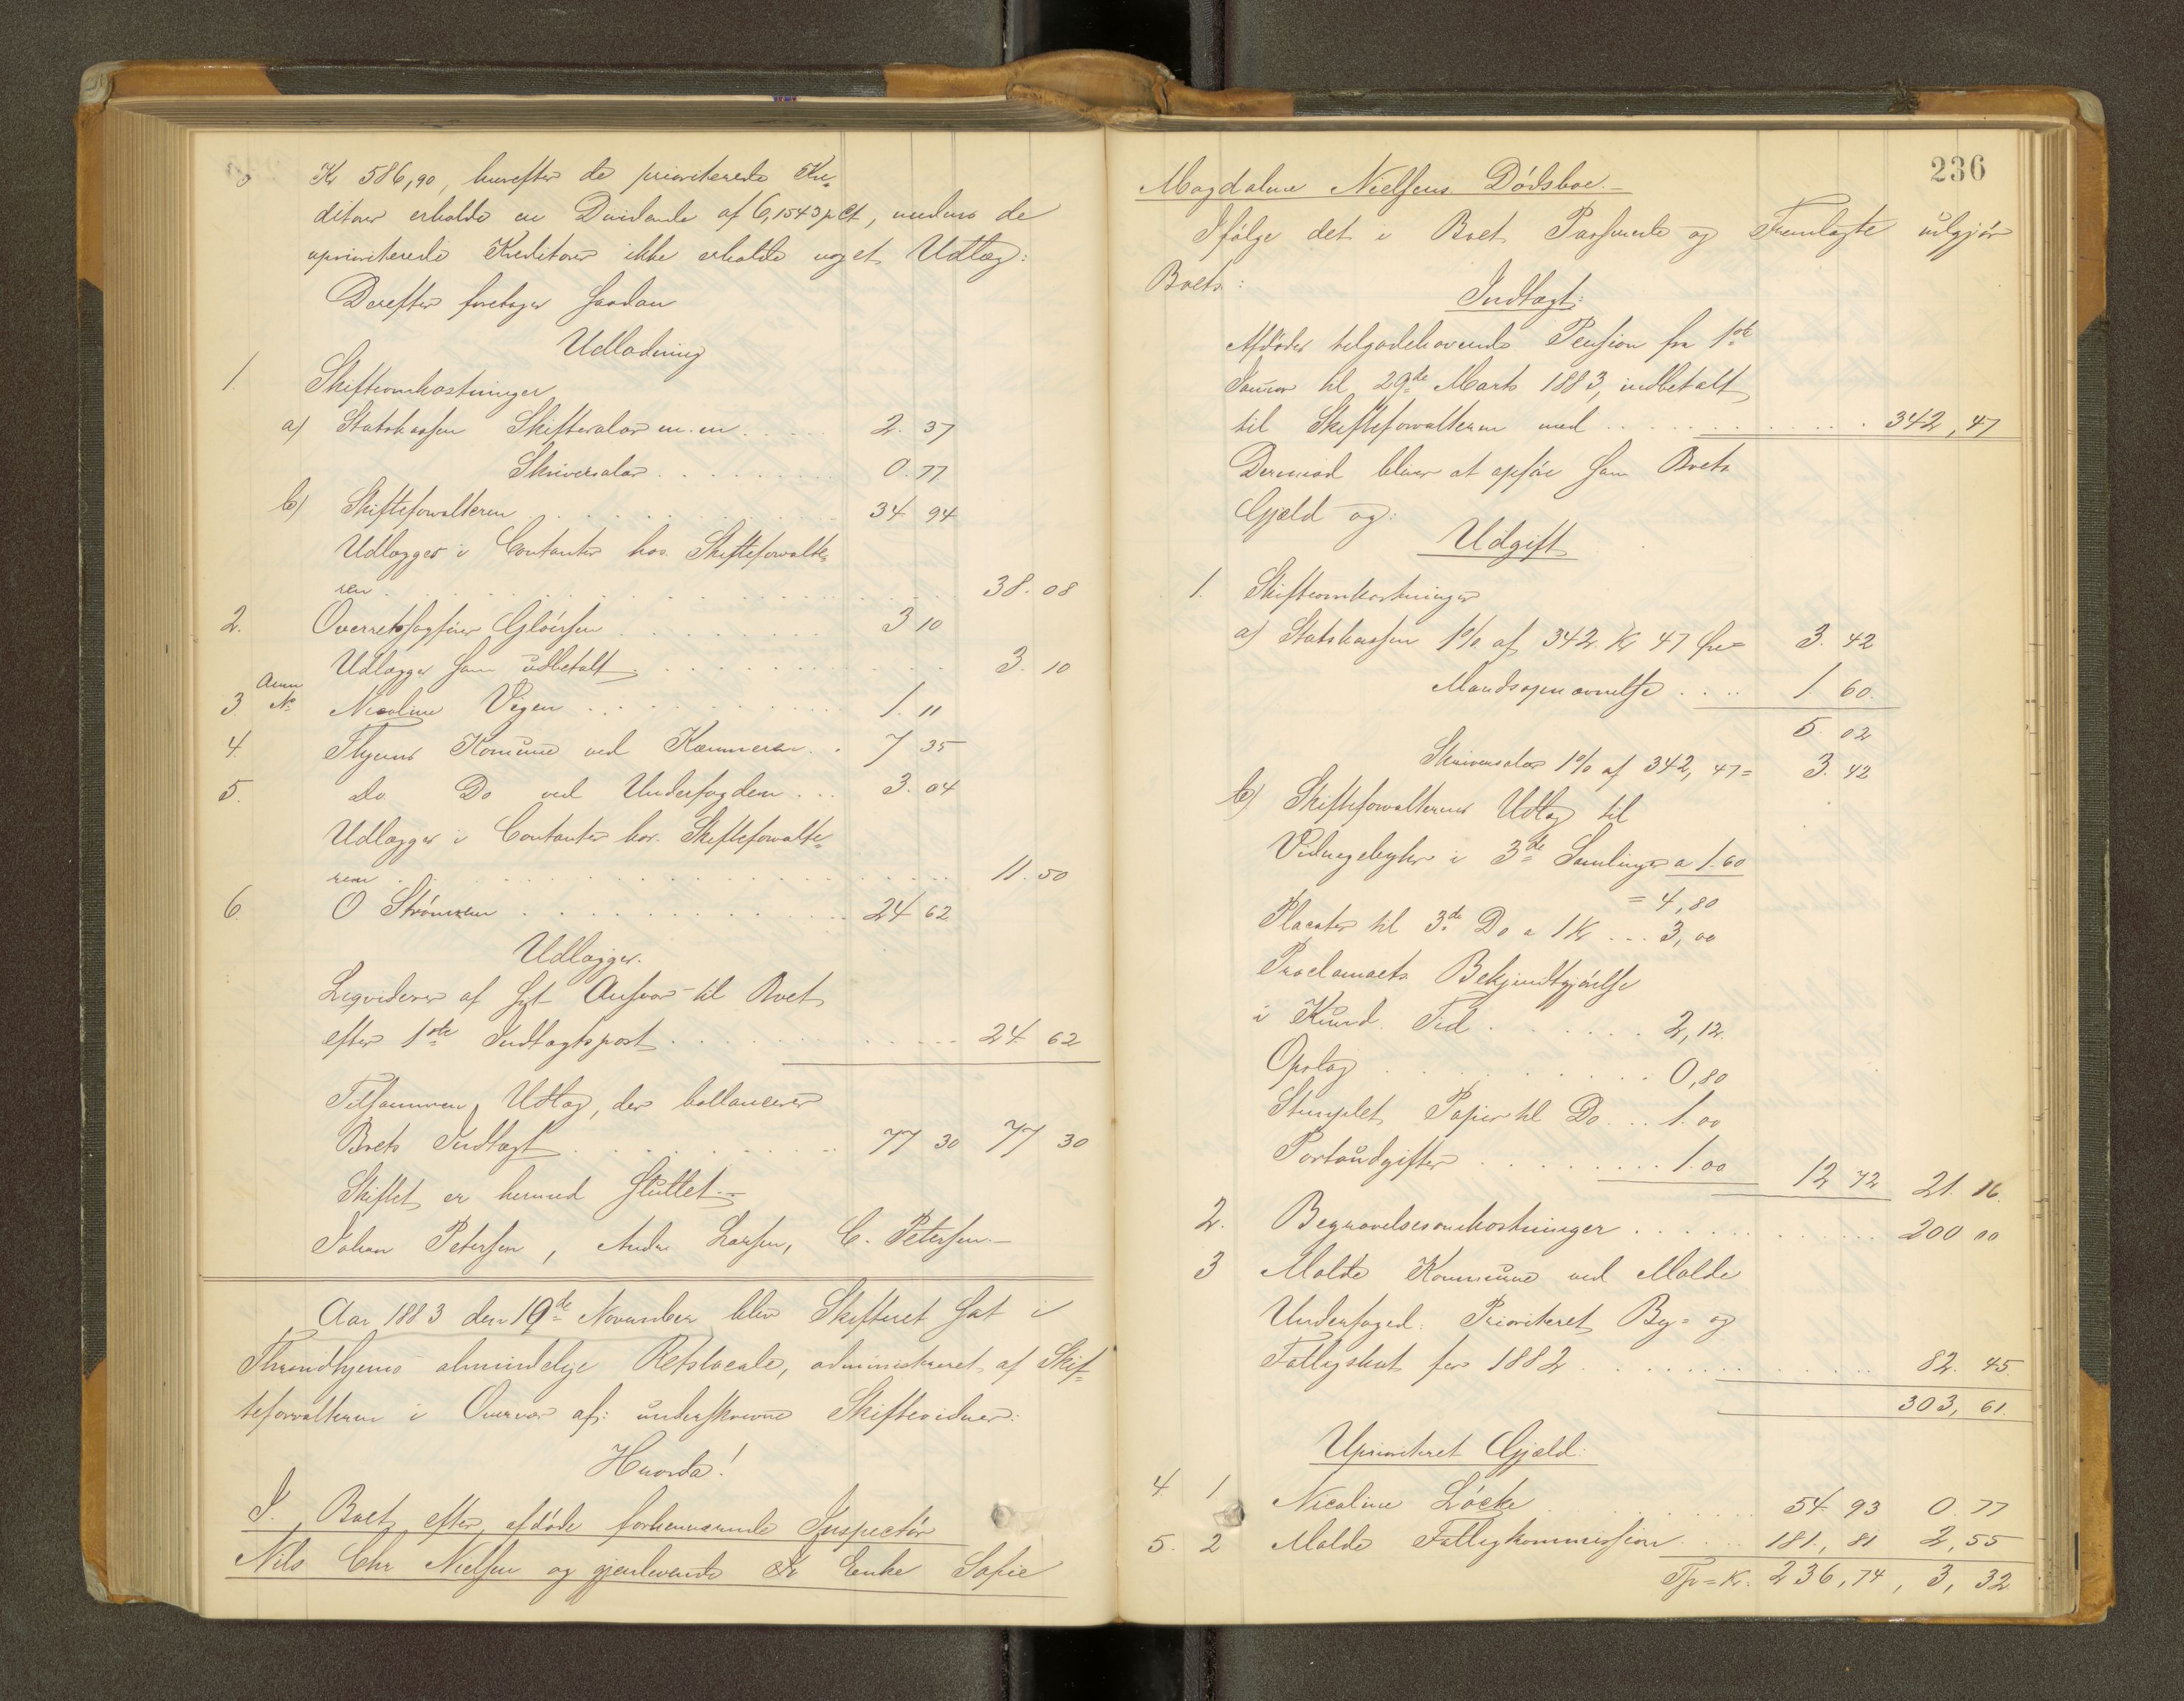 Kr 586,90, hvorefter de prioriterede Kre-
ditorer erholde en Dividende af 6,1543 pCt, medens de
uprioriterede Kreditorer ikke erholde noget Udlæg:
Derefter foretages saadan
Udlodning
1. Skifteomkostninger
a) Statskassen Skiftesalær m. m. 2. 37
Skriversalær 0. 77
b) Skifteforvalteren 34 94
Udlægges i Contanter hos Skifteforvalte-
ren 38. 08
2. Overretssagfører Gløersen 3 10
Udlægges som udbetalt 3. 10
Anm
3. No Nicoline Vigen 1. 11
4. Thjems Komune ved Kæmneren 7 35
5. do Do ved Underfogden 3. 04
Udlægges i Contanter hos Skifteforvalte-
ren 11. 50
6. O Strömmen 24 62
Udlægges.
Liqviderer af sit Ansvar til Boet
efter 1ste Indtægtspost 24 62
Tilsammen Udlæg, der ballancerer
Boets Indtægt 77 30 77 30
Skiftet er hermed sluttet.-
Johan Petersen, Andr. Larsen, C. Petersen.-
Aar 1883 den 19de November blev Skifteret sat i
Throndhjems almindelige Retslocale, administreret af Skif-
teforvalteren i Overvær af: underskrevne Skiftevidner:
Hvorda!
I Boet efter afdøde forhenværende Inspectör
Nils Chr Nielsen og gjenlevende Enke Sofie
236
Magdalene Nielsens Dödsboe.-
Ifølge det i Boet Passerede og Fremlagte udgjør
Boets:
Indtægt:
Afdødes tilgodehavende Pension fra 1ste
Januar til 29de Marts 1883, indbetalt
til Skifteforvalteren med 342,47
Derimod bliver at opføre som Boets
Gjæld og:
Udgift
1. Skifteomkostninger
a) Statskassen 1% af 342 Kr 47 Øre = 3. 42
Mandsopnævnelse 1 60.
5 02
Skriversalær 1% af 342, 47 = 3. 42
b) Skifteforvalterens Udlæg til
Vidnegebyhr i 3de Samlinger a 1.60
= 4,80
Placater til 3de Do a 1 Kr 3,00
Proclamaets Bekjendtgjörelse
i Kund. Tid 2,12.
Opslag 0,80
Stemplet Papir til Do 1.00
Portoudgifter 1.00 12 72 21. 16.
2. Begravelsesomkostninger 200 00
3 Molde Kommune ved Molde
Underfoged: Prioriteret By- og
Fattigskat for 1882 82. 45.
303, 61.
Uprioriteret Gjæld:
4 1 Nicoline Löcke 54. 93 0. 77
5. 2 Molde Fattigkommission 181, 81 2,55
Tils = Kr. 236,74, 3, 32